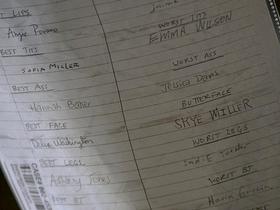 T LIPS
Angie Poreme
BEST TITS
SOFIA MILLER
BEST ASS
Hannah Baker
BEST FACE
Dave Washington
BEST LEGS
BEST BT
WORST LIPS
EMMA WILSON
WORST ASS
Jessica Davis
BUTTERFACE
SKYE MILLER
WORST LEGS
WORST BT
Maria